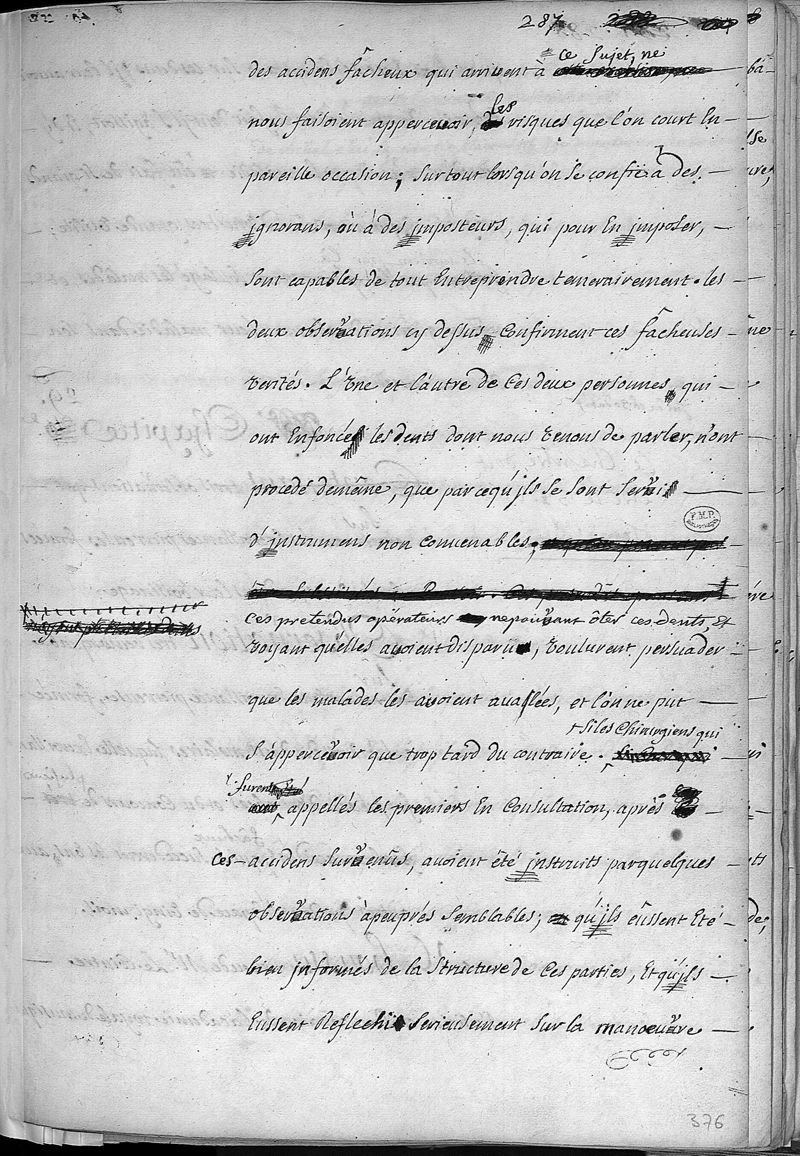 287
ce sujet, ne
des accidens fâcheux qui arrivent à
nous faisoient appercevoir, les risques que l'on court En
pareille occasion; surtout lorsqu'on se confie à des
jgnorans, où à des jmposteurs, qui pour En jmposer,
sont capables de tout Entreprendre temerairement. les
deux observations cy dessus Confirment ces fâcheuses
verités. L'Une et l'autre de Ces deux personnes qui
ont Enfoncé les dents dont nous venons de parler, n'ont
procedé de même, que parcequ'jls se sont servi
P.M.P.
BIBLIOTHÈQUE
d'jnstrumens non Convenables;
ces pretendus opérateurs ne pouvant ôter ces dents, et
voyant qu'elles avoient disparu, voulurent persuader
que les malades les avoient avallées, et l'on ne put
s'appercevoir que trop tard du contraire. si les Chirurgiens qui
furent
appellés les premiers En Consultation, après
ces accidens survenûs, avoient été jnstruits par quelques
observations àpeuprés semblables; qu'jls eûssent Eté
bien jnformés de la structure de Ces parties, Et qu'jls
Eussent Reflechi serieusement sur la manoeuvre
376